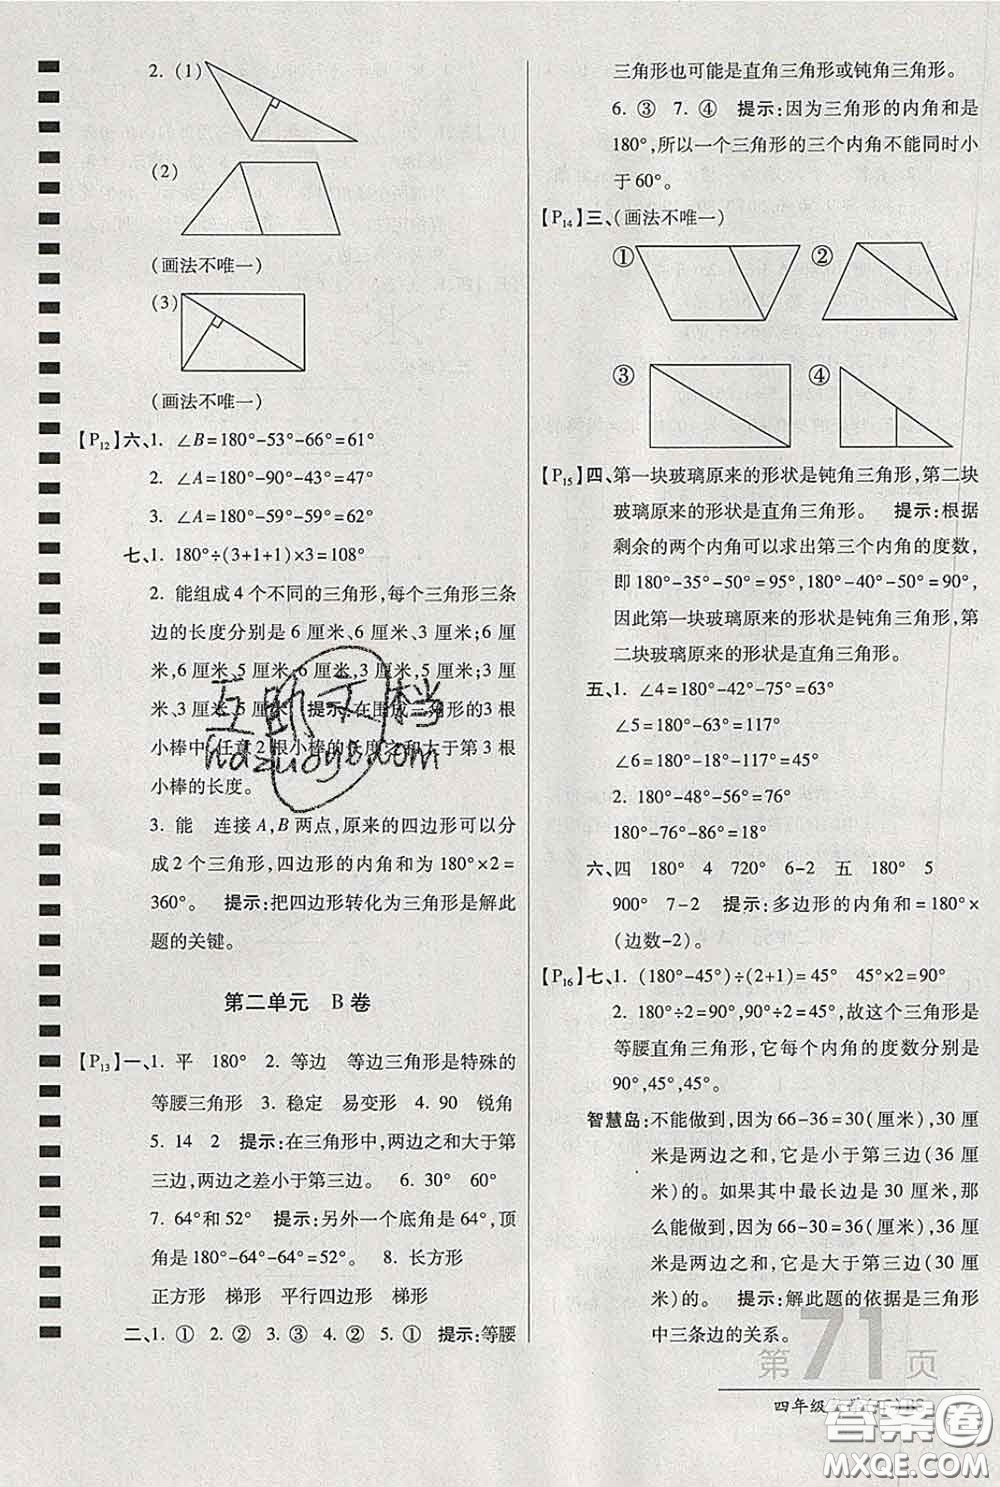 2. (1)
(2)
(画法不唯一)
(3)
(画法不唯一)
【P12】六、1. ∠B=180°-53°-66°=61°
2. ∠A=180°-90°-43°=47°
3. ∠A=180°-59°-59°=62°
七、1. 180°÷(3+1+1)×3=108°
2. 能组成4个不同的三角形,每个三角形三条
边的长度分别是6厘米、6厘米、3厘米;6厘
米、6厘米、5厘米;6厘米、3厘米、5厘米;3厘
米、3厘米、5厘米。 提示:在围成三角形的3根
小棒中,任意2根小棒的长度之和大于第3根
小棒的长度。
3. 能 连接A,B两点,原来的四边形可以分
成2个三角形,四边形的内角和为180°×2=
360°。 提示:把四边形转化为三角形是解此
题的关键。
第二单元 B卷
【P13】一、1. 平 180° 2. 等边 等边三角形是特殊的
等腰三角形 3. 稳定 易变形 4. 90 锐角
5. 14 2 提示:在三角形中,两边之和大于第
三边,两边之差小于第三边。 6. 30° 60°
7. 64°和52° 提示:另外一个底角是64°,顶
角是180°-64°-64°=52°。 8. 长方形
正方形 梯形 平行四边形 梯形
二、1. ① 2. ② 3. ③ 4. ② 5. ① 提示:等腰
三角形也可能是直角三角形或钝角三角形。
6. ③ 7. ④ 提示:因为三角形的内角和是
180°,所以一个三角形的三个内角不能同时小
于60°。
【P14】三、(画法不唯一)
① ②
③ ④
【P15】四、第一块玻璃原来的形状是钝角三角形,第二块
玻璃原来的形状是直角三角形。 提示:根据
剩余的两个内角可以求出第三个内角的度数,
即180°-35°-50°=95°,180°-40°-50°=90°,
因此第一块玻璃原来的形状是钝角三角形,第
二块玻璃原来的形状是直角三角形。
五、1. ∠4=180°-42°-75°=63°
∠5=180°-63°=117°
∠6=180°-18°-117°=45°
2. 180°-48°-56°=76°
180°-76°-86°=18°
六、四 180° 4 720° 6-2 五 180° 5
900° 7-2 提示:多边形的内角和=180°×
(边数-2)。
【P16】七、1. (180°-45°)÷(2+1)=45° 45°×2=90°
2. 180°÷2=90°,90°÷2=45°,故这个三角形是
等腰直角三角形,它每个内角的度数分别是
90°,45°,45°。
智慧岛:不能做到,因为66-36=30(厘米),30厘
米是两边之和,它是小于第三边(36厘
米)的。如果其中最长边是30厘米,那
么能做到,因为66-30=36(厘米),36厘
米是两边之和,它是大于第三边(30厘
米)的。 提示:解此题的依据是三角形
中三条边的关系。
第71页
四年级
互助文档
hdzuoye.com
答案圈
MXQE.COM